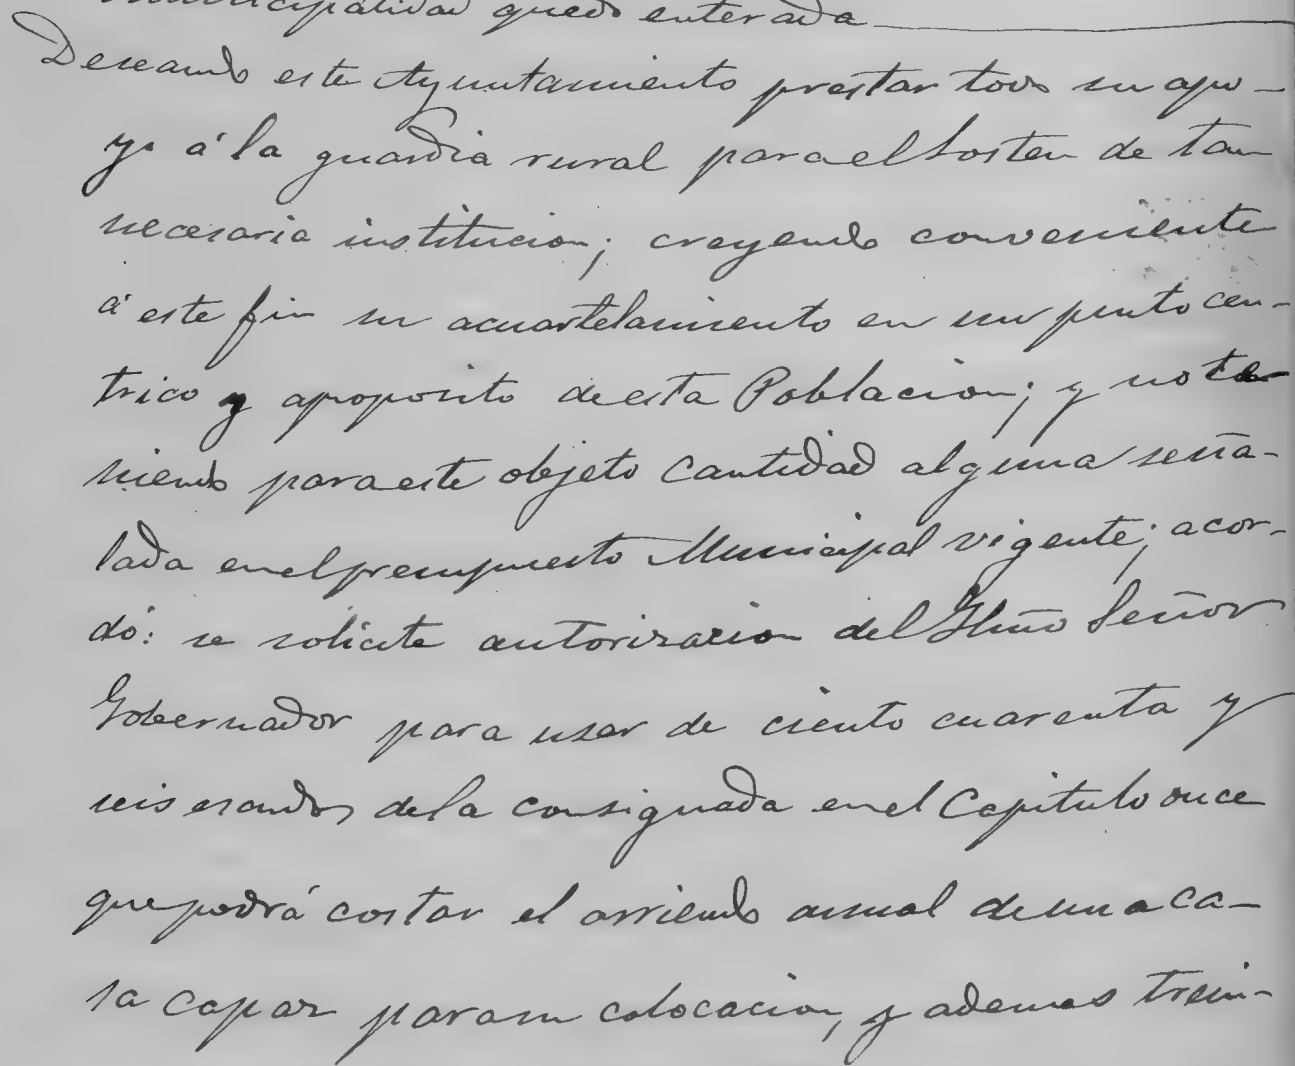 municipalidad quedó enterada
Deseando este Ayuntamiento prestar todo su apo-
yo á la guardia rural para el sosten de tan
necesaria institucion; creyendo conveniente
á este fin su acuartelamiento en un punto cen-
trico y aproposito de esta Poblacion; y no te-
niendo para este objeto cantidad alguna seña-
lada en el presupuesto Municipal vigente; acor-
dó: se solicite autorizacion del Ylmo Señor
Gobernador para usar de ciento cuarenta y
seis escudos de la consignada en el Capitulo once
que podrá costar el arriendo anual de una ca-
sa capaz para su colocacion, y ademas trein-